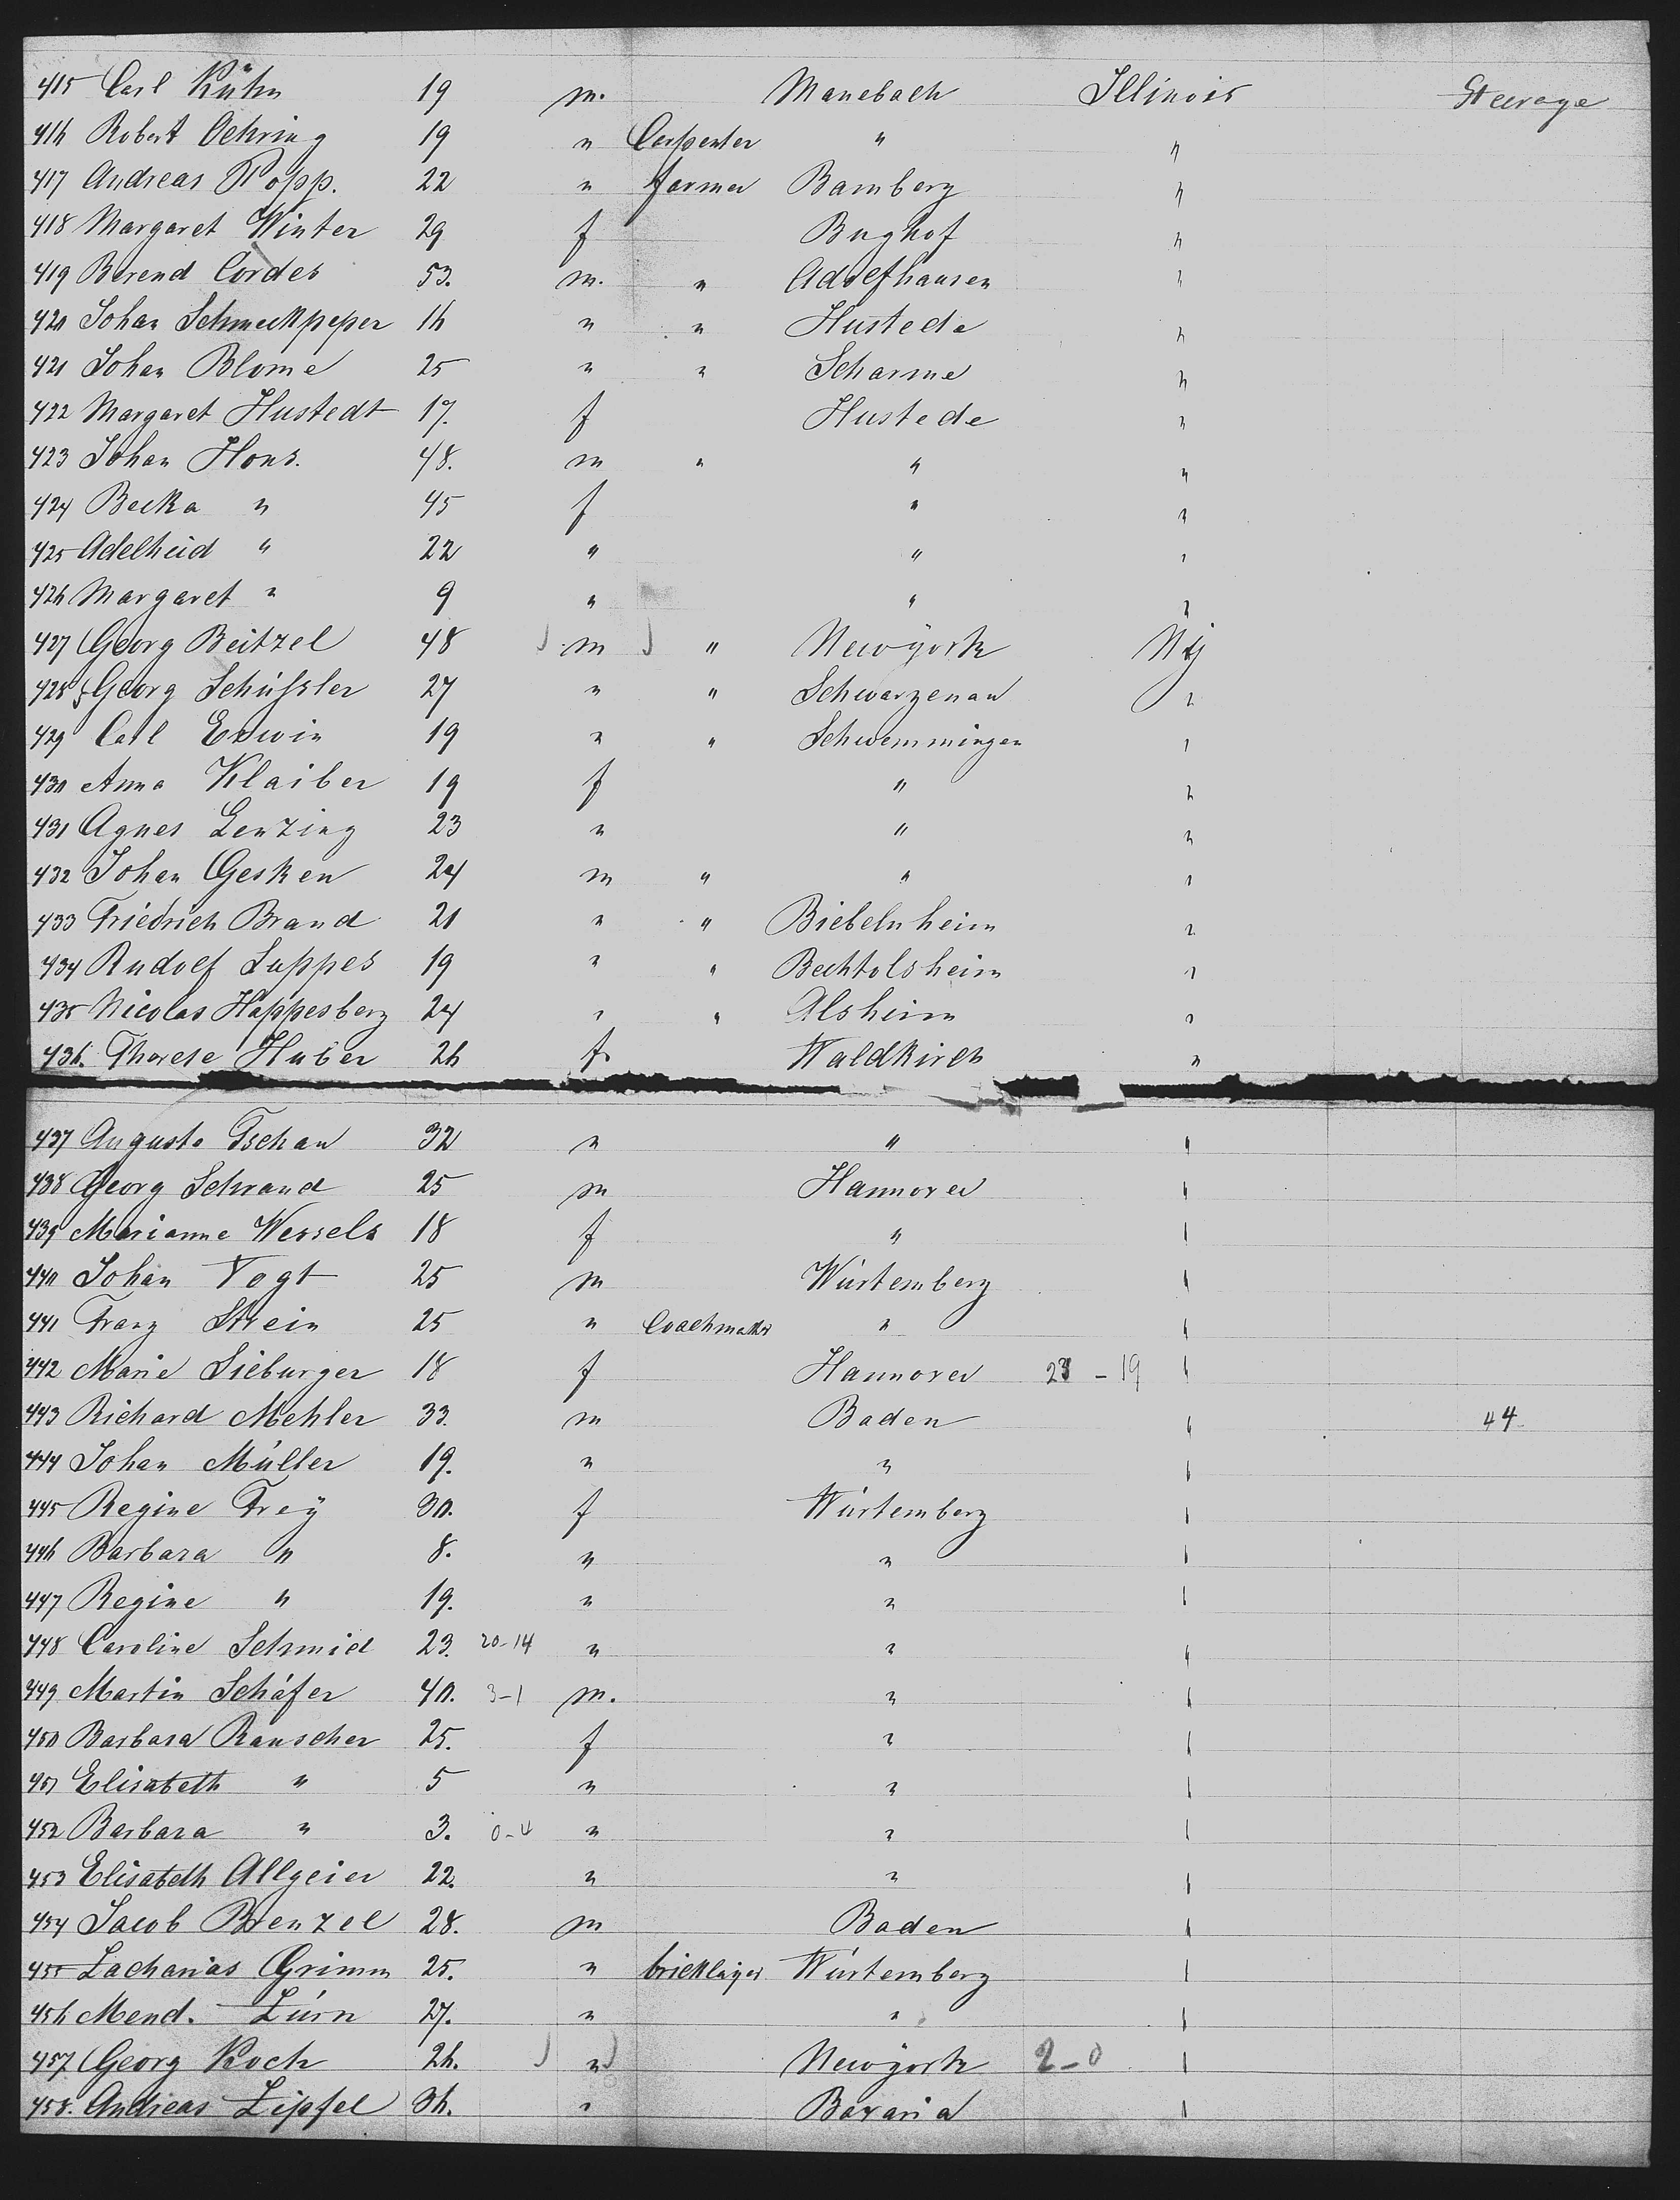 415 Carl Kühn 19 m. Manebach Illinois Steerage
416 Robert Oehring 19 " Carpenter " "
417 Andreas Popp. 22 " farmer Bamberg "
418 Margaret Winter 29 f Bughof "
419 Berend Cordes 53. m. " Adolfhausen "
420 Johan Schmeckpeper 16 " " Hustede "
421 Johan Blome 25 " " Scharme "
422 Margaret Hustedt 17. f Hustede "
423 Johan Hons. 48. m " " "
424 Becka " 45 f " "
425 Adelheid " 22 " " "
426 Margaret " 9 " " "
427 Georg Beitzel 48 m " Newyork Ny
428 Georg Schüssler 27 " " Schwarzenau "
429 Carl Erwin 19 " " Schwemmingen "
430 Anna Klaiber 19 f " "
431 Agnes Lenzing 23 " " "
432 Johan Gesken 24 m " " "
433 Friedrich Brand 21 " " Biebelnheim "
434 Rudolf Luppes 19 " " Bechtolsheim "
435 Nicolas Happesberg 24 " " Alsheim "
436. Therese Huber 26 f. Waldkirch "
437 Auguste Tschan 32 " " "
438 Georg Schrand 25 m Hannover "
439 Marianne Wessels 18 f " "
440 Johan Vogt 25 m Würtemberg "
441 Franz Strein 25 " Coachmaker " "
442 Marie Sieburger 18 f Hannover 23 - 19 "
443 Richard Mehler 33. m Baden " 44
444 Johan Müller 19. " " "
445 Regine Frey 30. f Würtemberg "
446 Barbara " 8. " " "
447 Regine " 19. " " "
448 Caroline Schmid 23. 20-14 " " "
449 Martin Schäfer 40. 3-1 m. " "
450 Barbara Rauscher 25. f " "
451 Elisabeth " 5 " " "
452 Barbara " 3. 0-4 " " "
453 Elisabeth Allgeier 22. " " "
454 Jacob Brenzel 28. m Baden "
455 Zacharias Grimm 25. " bricklayer Würtemberg "
456 Mend. Zürn 27. " " "
457 Georg Koch 26. " Newyork 2-0 "
458. Andreas Zipfel 36. " Bavaria "